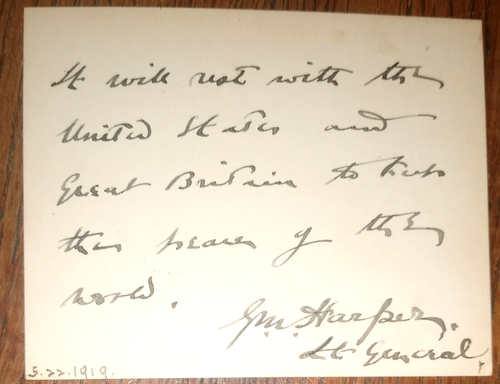 It will rest with the
United States and
Great Britain to keep
the peace of the
world.
G.M. Harper.
Lt General
5.22.1919.